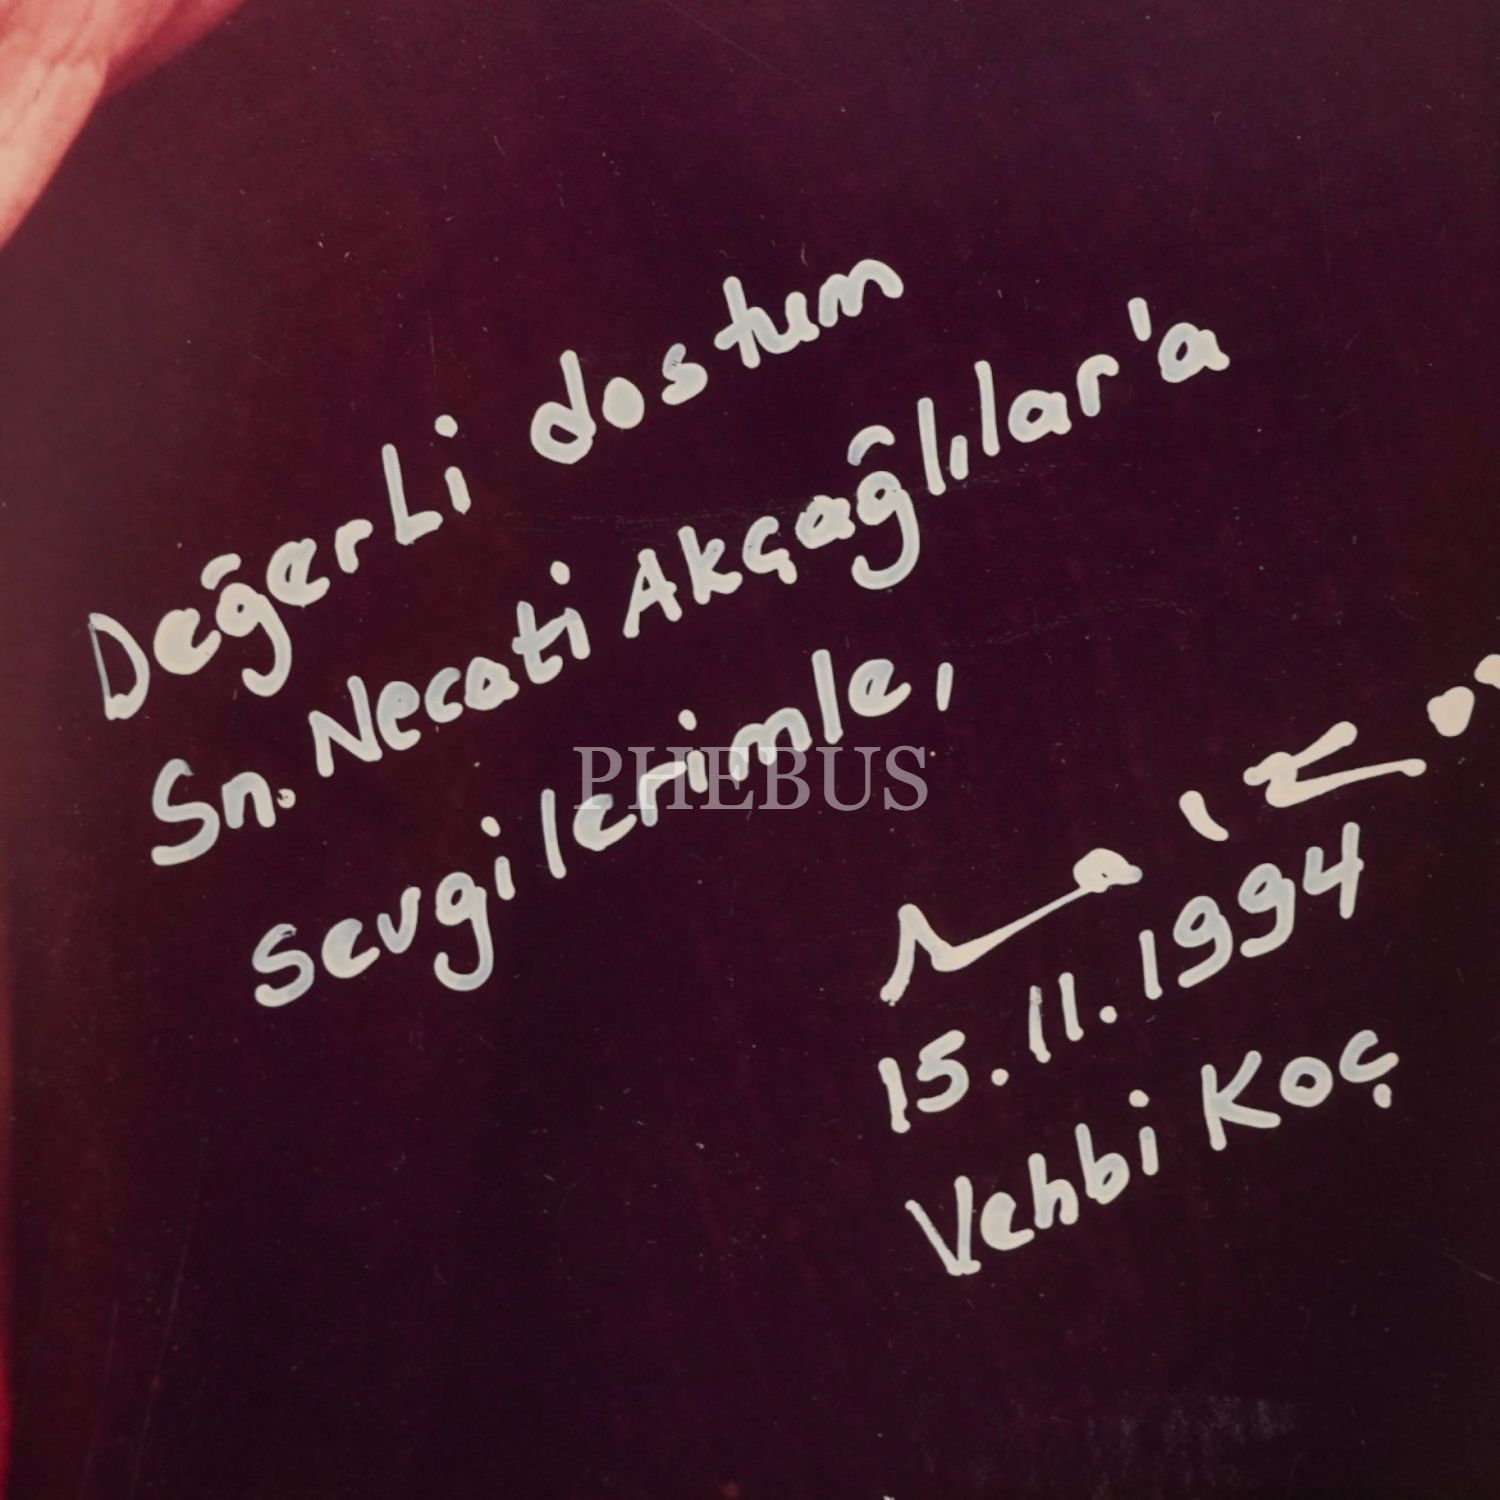 Değerli dostum
Sn. Necati Akçağlılar'a
sevgilerimle,
PHEBUS
15.11.1994
Vehbi Koç